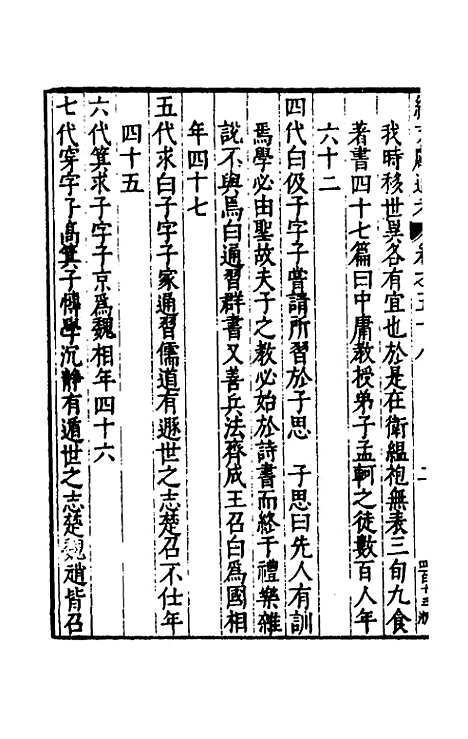 我時移世異各有宜也於是在衛縕袍無表三旬九食
著書四十七篇曰中庸教授弟子孟軻之徒數百人年
六十二
四代白伋子字子嘗請所習於子思 子思曰先人有訓
焉學必由聖故夫子之教必始於詩書而終于禮樂雜
說不與焉白通習群書又善兵法齊成王召白爲國相
年四十七
五代求白子字子家通習儒道有遯世之志楚召不仕年
四十五
六代箕求子字子京爲魏相年四十六
七代穿字子高箕子慱學沉静有遁世之志楚魏趙皆召